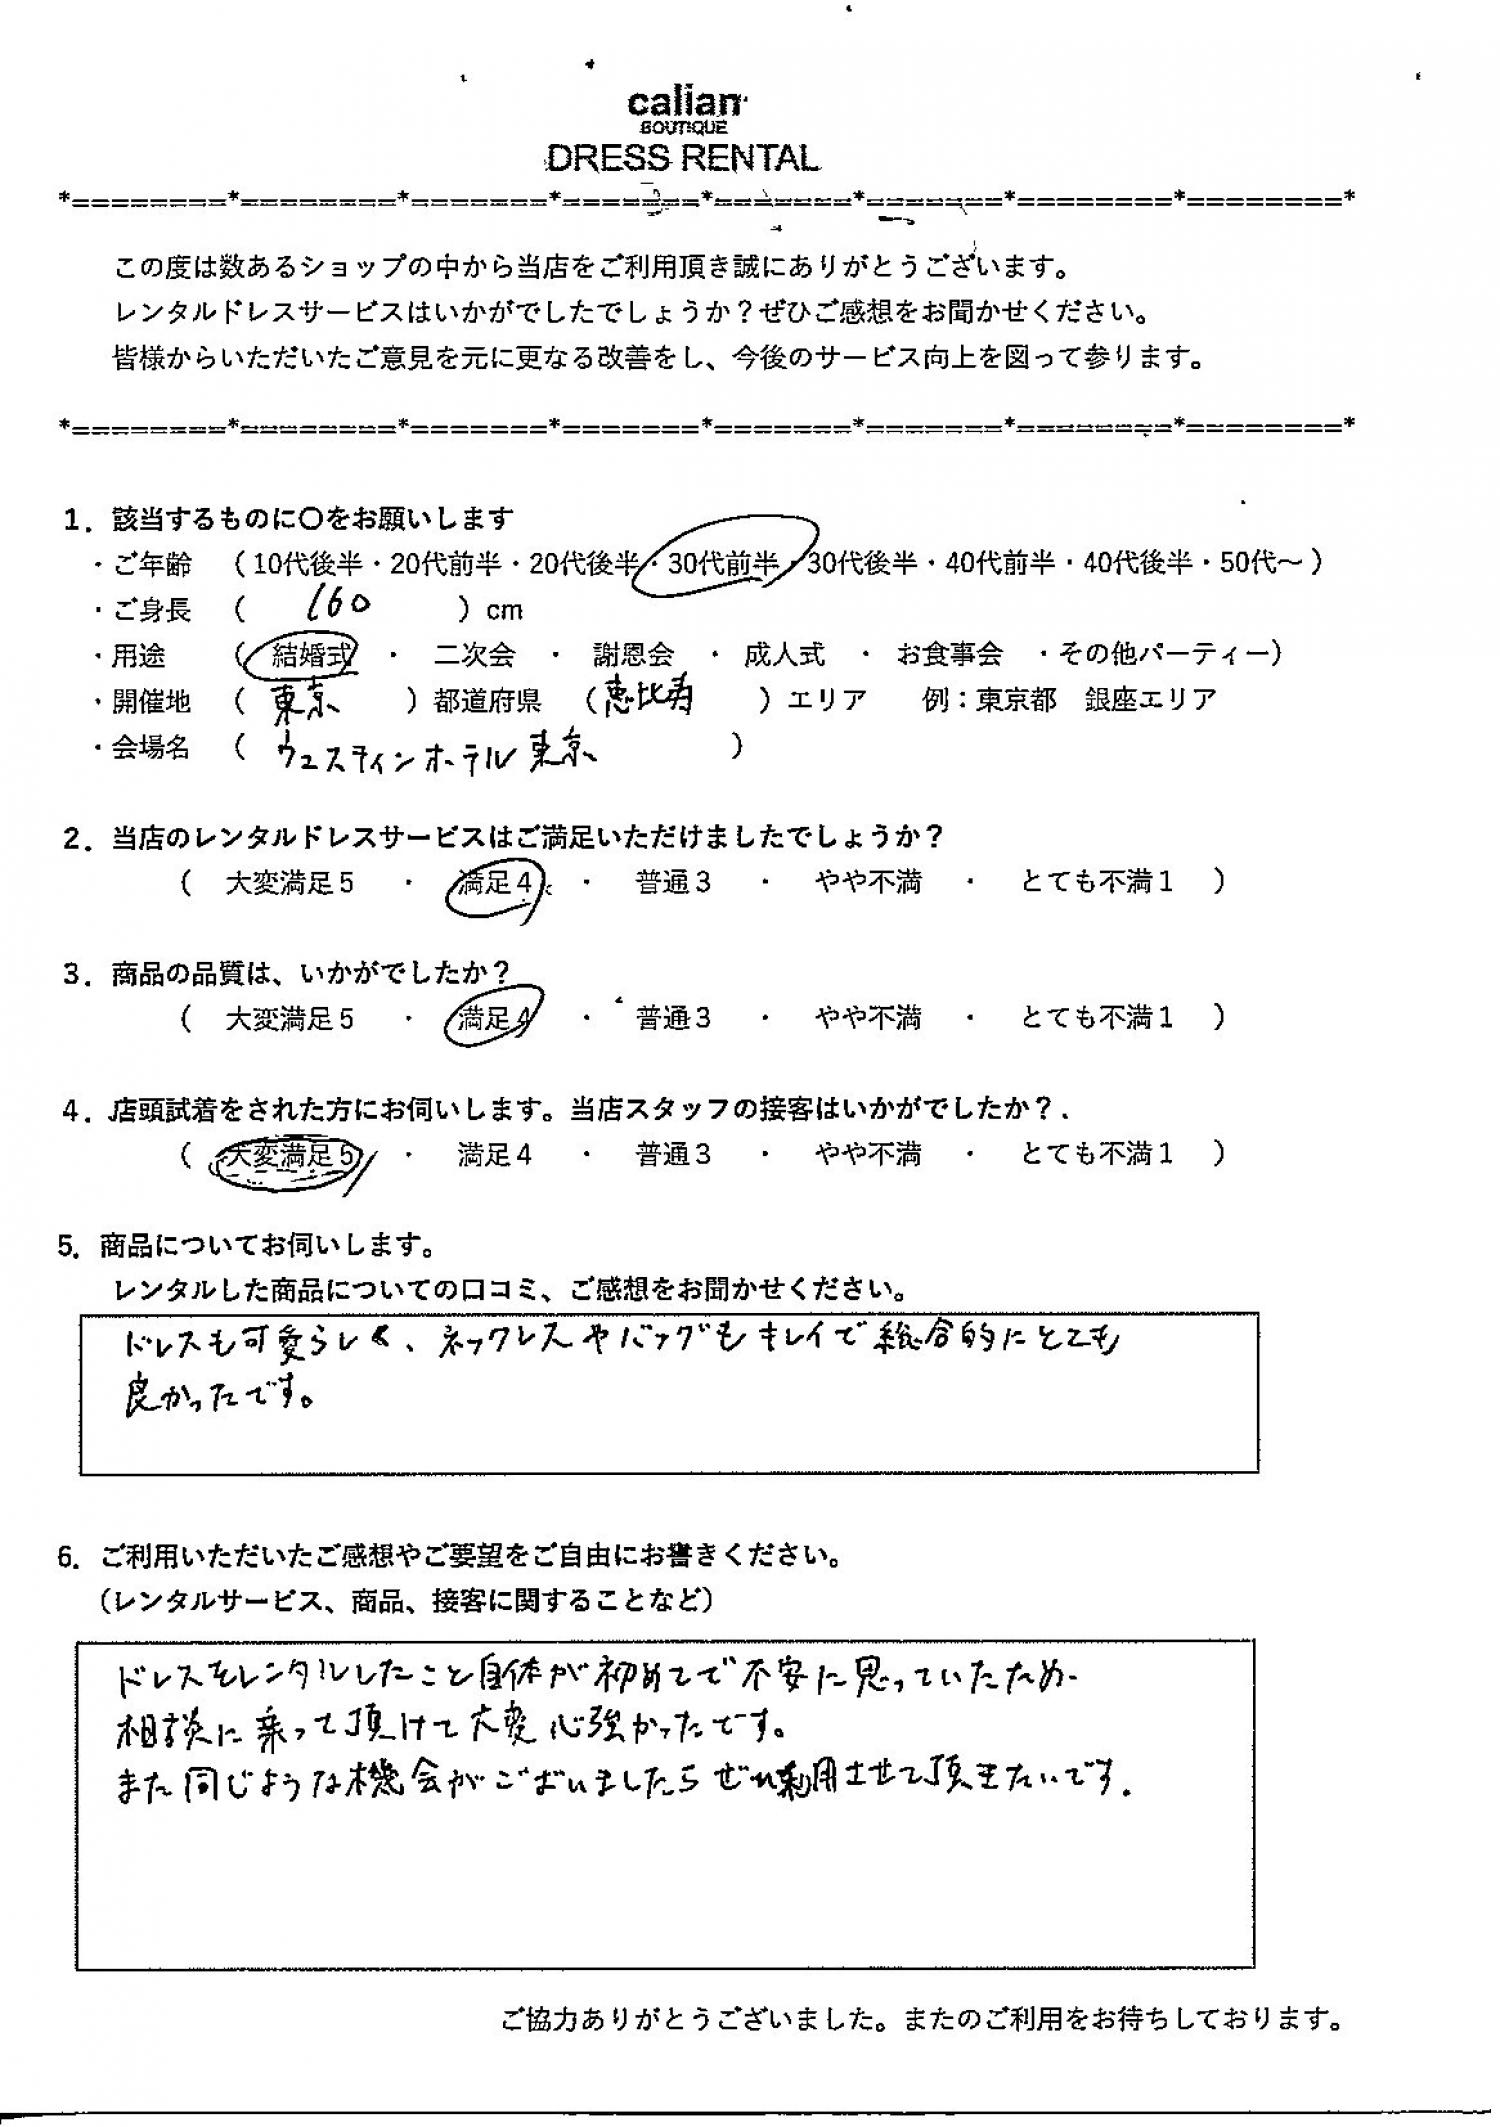 calian
BOUTIQUE
DRESS RENTAL
*========*========*=======*=======*=======*=======*========*========*
この度は数あるショップの中から当店をご利用頂き誠にありがとうございます。
レンタルドレスサービスはいかがでしたでしょうか？ぜひご感想をお聞かせください。
皆様からいただいたご意見を元に更なる改善をし、今後のサービス向上を図って参ります。
*========*========*=======*=======*=======*=======*========*========*
1．該当するものに〇をお願いします
・ご年齢 （10代後半・20代前半・20代後半・30代前半・30代後半・40代前半・40代後半・50代～）
・ご身長 （ 160 ）cm
・用途 （ 結婚式 ・ 二次会 ・ 謝恩会 ・ 成人式 ・ お食事会 ・その他パーティー）
・開催地 （ 東京 ）都道府県 （恵比寿 ）エリア 例：東京都 銀座エリア
・会場名 （ ウェスティンホテル東京 ）
2．当店のレンタルドレスサービスはご満足いただけましたでしょうか？
（ 大変満足5 ・ 満足4 ・ 普通3 ・ やや不満 ・ とても不満1 ）
3．商品の品質は、いかがでしたか？
（ 大変満足5 ・ 満足4 ・ 普通3 ・ やや不満 ・ とても不満1 ）
4．店頭試着をされた方にお伺いします。当店スタッフの接客はいかがでしたか？
（ 大変満足5 ・ 満足4 ・ 普通3 ・ やや不満 ・ とても不満1 ）
5．商品についてお伺いします。
レンタルした商品についての口コミ、ご感想をお聞かせください。
ドレスも可愛らしく、ネックレスやバッグもキレイで総合的にとても
良かったです。
6．ご利用いただいたご感想やご要望をご自由にお書きください。
（レンタルサービス、商品、接客に関することなど）
ドレスをレンタルしたこと自体が初めてで不安に思っていたため、
相談に乗って頂けて大変心強かったです。
また同じような機会がございましたらぜひ利用させて頂きたいです。
ご協力ありがとうございました。またのご利用をお待ちしております。